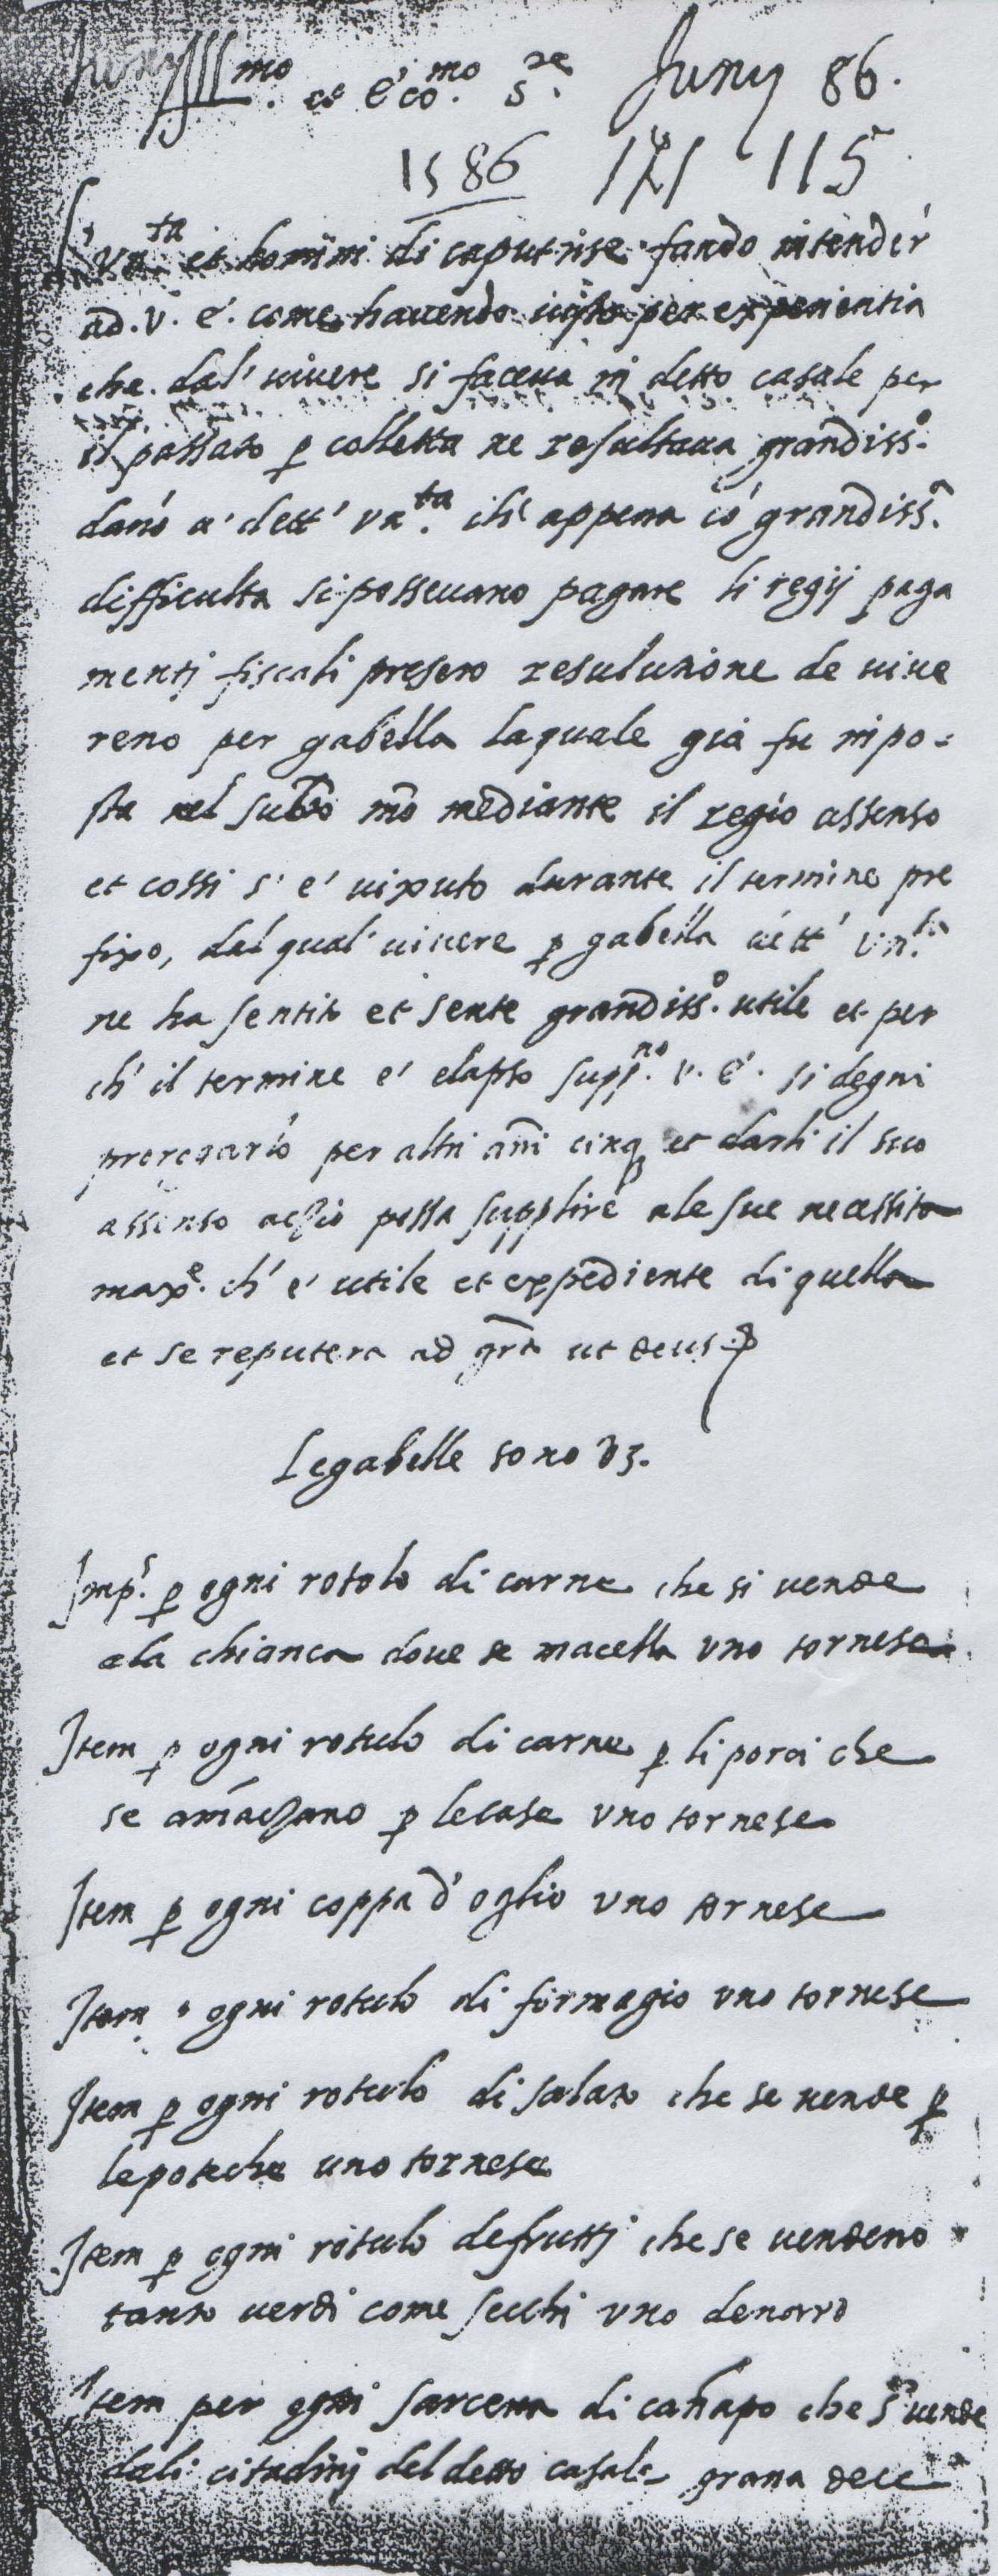 Ill.mo et ecc.mo S.re Juny 86.
1586 171 115
L'un.ta et homini di caputrise fando intender'
ad. V. E. come havendo visto per experientia
che dal' vivere si faceva in detto casale per
il passato p colletta ne resultava grandiss.o
danno a' dett' un.ta ch' appena có grandiss.a
difficulta si possevano pagare li regij paga
menti fiscali presero resolutione de vive
reno per gabella laquale già fu inpo-
sta nel sub.to mō mediante il regio assenso
et cossi s' e' vixuto durante il termine pre
fixo, dal qual' vivere p gabella dett' un.ta
ne ha sentito et sente grandiss.o utile et per
ch' il termine e' elapso supp.no V. E. si degni
prorogarlo per altri anni cinq et darli il suo
assenso acciò possa supplire ale sue necessita
max.e ch' e' utile et expediente di quella
et se reputera ad grā ut deus
Le gabelle sono vz.
Imp.s p ogni rotolo di carne che si vende
ala chianca dove se macella uno tornese
Item p ogni rotulo di carne p li porci che
se amāczano p le case uno tornese
Item p ogni coppa d'oglio uno tornese
Item p ogni rotulo di formagio uno tornese
Item p ogni rotulo di salato che se vende p
le poteche uno tornese
Item p ogni rotulo de frutti che se vendeno
tanto verdi come secchi uno denaro
Item per ogni sarcena di cānapo che s' vende
dali citadinj del detto casale grana dece